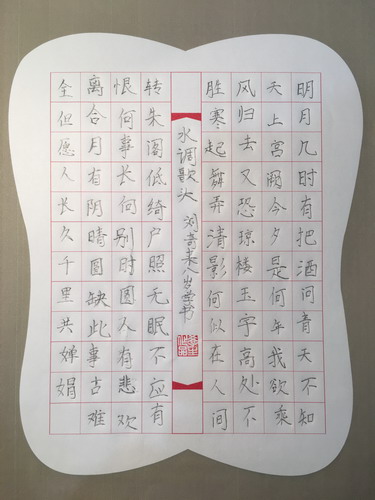 明月几时有把酒问青天不知
天上宫阙今夕是何年我欲乘
风归去又恐琼楼玉宇高处不
胜寒起舞弄清影何似在人间
水调歌头 刘奇来八岁学书
转朱阁低绮户照无眠不应有
恨何事长何别时圆人有悲欢
离合月有阴晴圆缺此事古难
全但愿人长久千里共婵娟